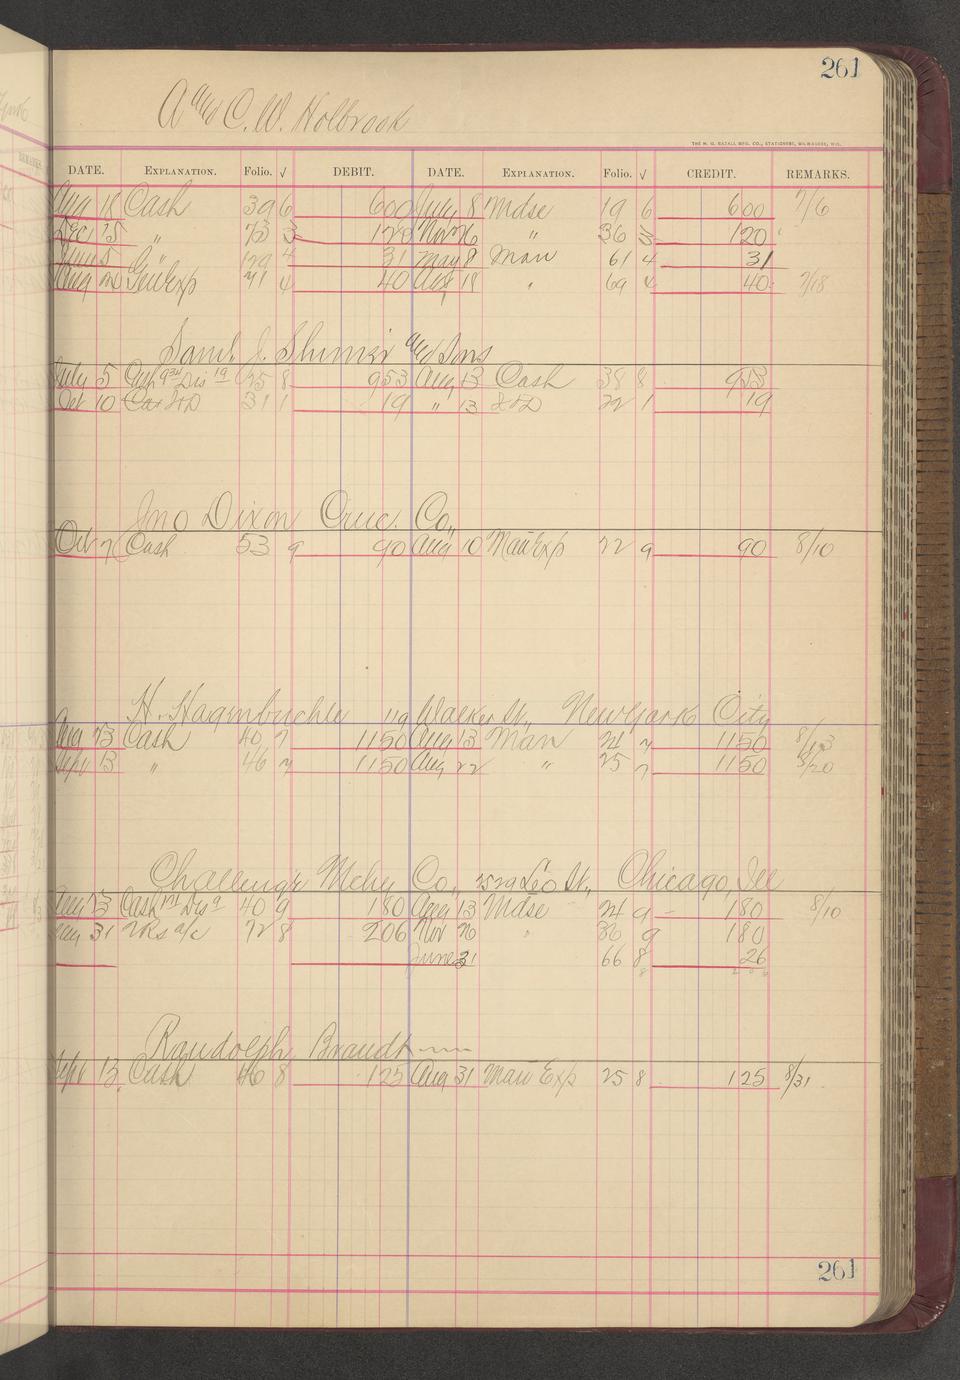 261
A and C. W. Holbrook
THE H. G. RAZALL MFG. CO., STATIONERS, MILWAUKEE, WIS.
DATE. EXPLANATION. Folio. √ DEBIT. DATE. EXPLANATION. Folio. √ CREDIT. REMARKS.
Aug 18 Cash 39 6 600 July 8 Mdse 19 6 600 7/6
Dec 15 " 73 3 120 Nov 26 " 36 3 120
5 " 129 4 31 May 8 Man 61 4 31
Aug Gen Exp 71 4 40 18 " 69 4 40 7/18
Saml. J. Shimer and Sons
July 5 Cash 934 Dis 19 35 8 953 Aug 13 Cash 38 8 953
Oct 10 31 1 19 " 13 22 1 19
Jno Dixon Cruc. Co.,
Oct 7 Cash 53 9 90 Aug 10 Man Exp 22 9 90 8/10
H. Hagmbuchle 119 Walker St., New York City
Aug 23 Cash 40 7 1150 Aug 13 Man 24 7 1150 8/13
Sept 13 " 46 7 1150 Aug 22 " 25 7 1150 8/20
Challenge Mchy Co., 2529 Leo St., Chicago, Ill
Aug 23 Cash Dis 40 9 180 Aug 13 Mdse 24 9 180 8/10
31 a/c 72 8 206 Nov 26 " 36 9 180
June 31 66 8 26
Randolph Brandt
Sept 13 Cash 46 8 125 Aug 31 Man Exp 25 8 125 8/31
261